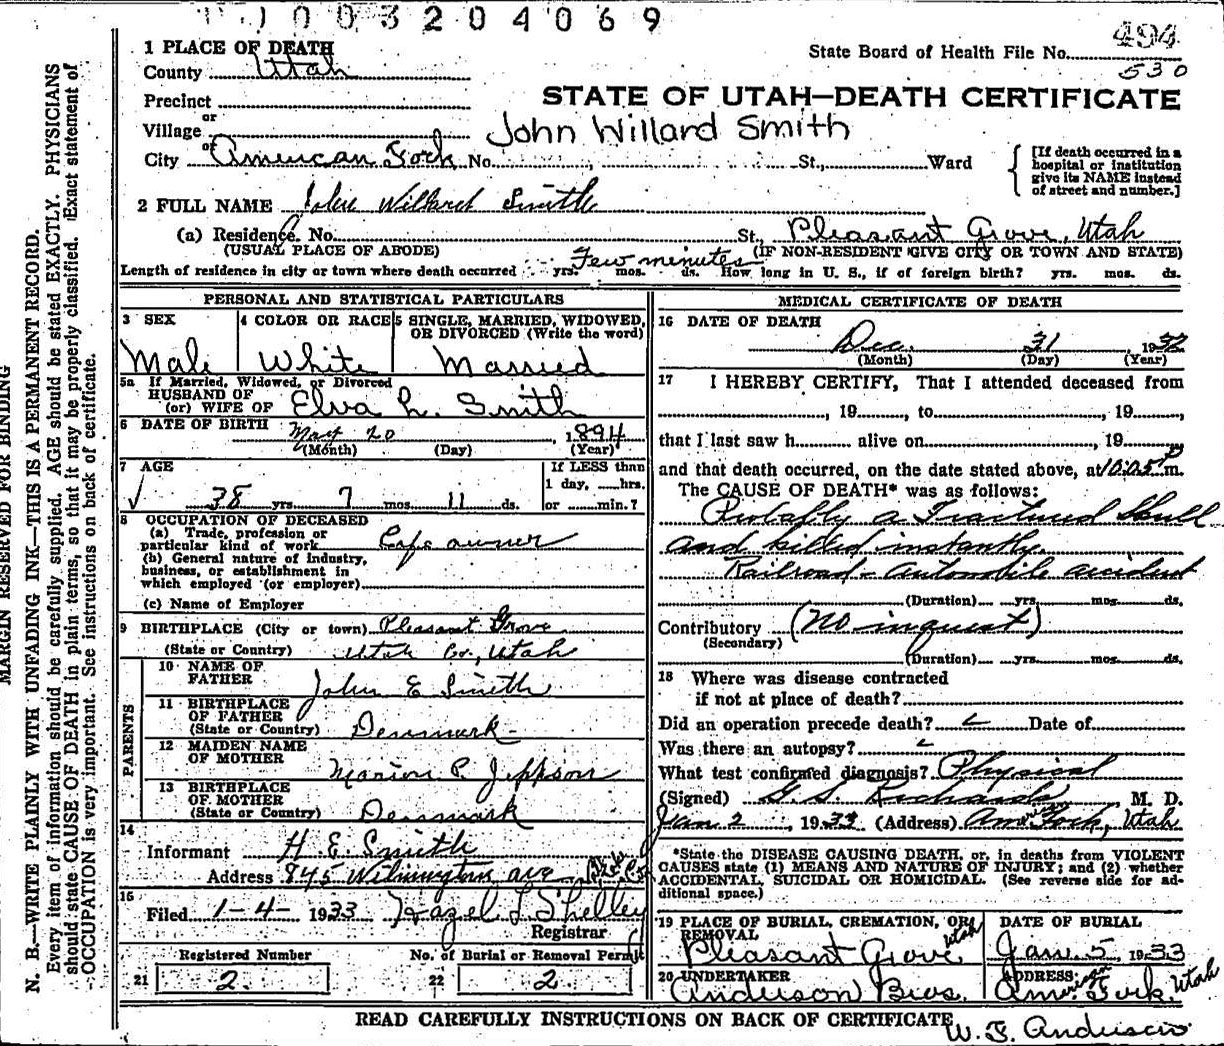 1003204069
1 PLACE OF DEATH
State Board of Health File No. 494
County Utah
530
Precinct
STATE OF UTAH—DEATH CERTIFICATE
or
Village
John Willard Smith
or
City American Fork, No. St., Ward
[If death occurred in a
hospital or institution
give its NAME instead
of street and number.]
2 FULL NAME John Willard Smith
(a) Residence. No. St., Pleasant Grove, Utah
(USUAL PLACE OF ABODE) (IF NON-RESIDENT GIVE CITY OR TOWN AND STATE)
Length of residence in city or town where death occurred yrs. mos. ds. Few minutes How long in U. S., if of foreign birth? yrs. mos. ds.
PERSONAL AND STATISTICAL PARTICULARS
3 SEX
Male
4 COLOR OR RACE
White
5 SINGLE, MARRIED, WIDOWED,
OR DIVORCED (Write the word)
Married
5a If Married, Widowed, or Divorced
HUSBAND OF
(or) WIFE OF Elva L. Smith
6 DATE OF BIRTH May 20, 1894
(Month) (Day) (Year)
7 AGE
38 yrs. 7 mos. 11 ds.
If LESS than
1 day, hrs.
or min.?
8 OCCUPATION OF DECEASED
(a) Trade, profession or
particular kind of work Cafe owner
(b) General nature of Industry,
business, or establishment in
which employed (or employer)
(c) Name of Employer
9 BIRTHPLACE (City or town) Pleasant Grove
(State or Country) Utah Co., Utah
PARENTS
10 NAME OF
FATHER John E Smith
11 BIRTHPLACE
OF FATHER
(State or Country) Denmark
12 MAIDEN NAME
OF MOTHER Marion P. Jeppson
13 BIRTHPLACE
OF MOTHER
(State or Country) Denmark
14
Informant H. E. Smith
Address 845 Wilmington ave
15
Filed 1-4-1933 Hazel L Shelley
Registrar
Registered Number No. of Burial or Removal Permit
21 2 22 2
MEDICAL CERTIFICATE OF DEATH
16 DATE OF DEATH
Dec. 31, 1932
(Month) (Day) (Year)
17 I HEREBY CERTIFY, That I attended deceased from
, 19 , to , 19 ,
that I last saw h alive on , 19
and that death occurred, on the date stated above, at 10:05 P m.
The CAUSE OF DEATH* was as follows:
Probably a Fractured Skull
and killed instantly.
Railroad - Automobile accident
(Duration) yrs. mos. ds.
Contributory (No inquest)
(Secondary)
(Duration) yrs. mos. ds.
18 Where was disease contracted
if not at place of death?
Did an operation precede death? Date of
Was there an autopsy?
What test confirmed diagnosis? Physical
(Signed) G. S. Richards M. D.
Jan 2, 1933 (Address) American Fork, Utah
*State the DISEASE CAUSING DEATH, or, in deaths from VIOLENT
CAUSES state (1) MEANS AND NATURE OF INJURY; and (2) whether
ACCIDENTAL, SUICIDAL OR HOMICIDAL. (See reverse side for ad-
ditional space.)
19 PLACE OF BURIAL, CREMATION, OR
REMOVAL
Pleasant Grove Utah
DATE OF BURIAL
Jan. 5, 1933
20 UNDERTAKER
Anderson Bros.
ADDRESS
American Fork, Utah
READ CAREFULLY INSTRUCTIONS ON BACK OF CERTIFICATE
W. F. Anderson
MARGIN RESERVED FOR BINDING
N. B.—WRITE PLAINLY WITH UNFADING INK—THIS IS A PERMANENT RECORD.
Every item of information should be carefully supplied. AGE should be stated EXACTLY. PHYSICIANS
should state CAUSE OF DEATH in plain terms, so that it may be properly classified. Exact statement of
OCCUPATION is very important. See instructions on back of certificate.